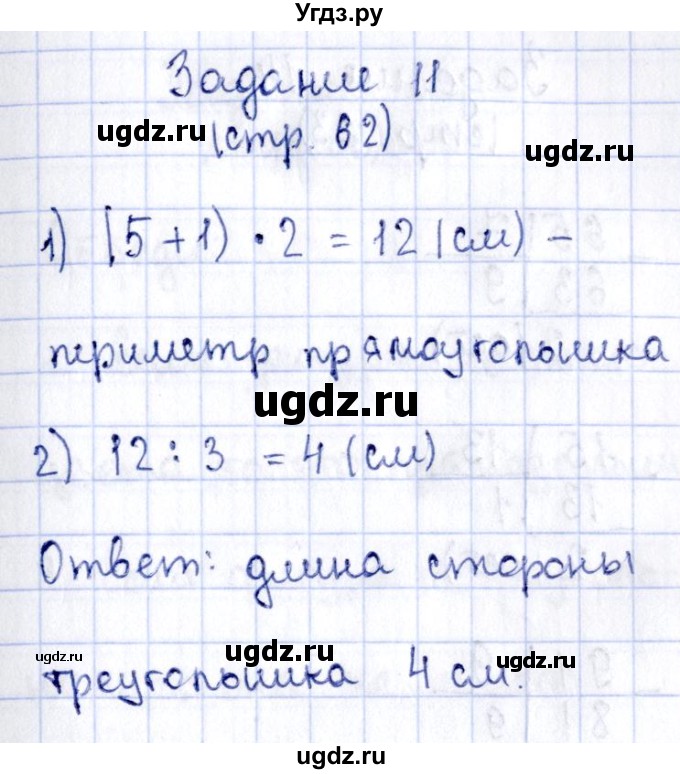 Угдз.ру
Задание 11
ugdz.ru (стр. 62) ugdz.ru
1) (5+1) · 2 = 12 (см) –
периметр прямоугольника
ugdz.ru
2) 12 : 3 = 4 (см)
Ответ: длина стороны
ugdz.ru ugdz.ru ugdz.ru
треугольника 4 см.
ugdz.ru